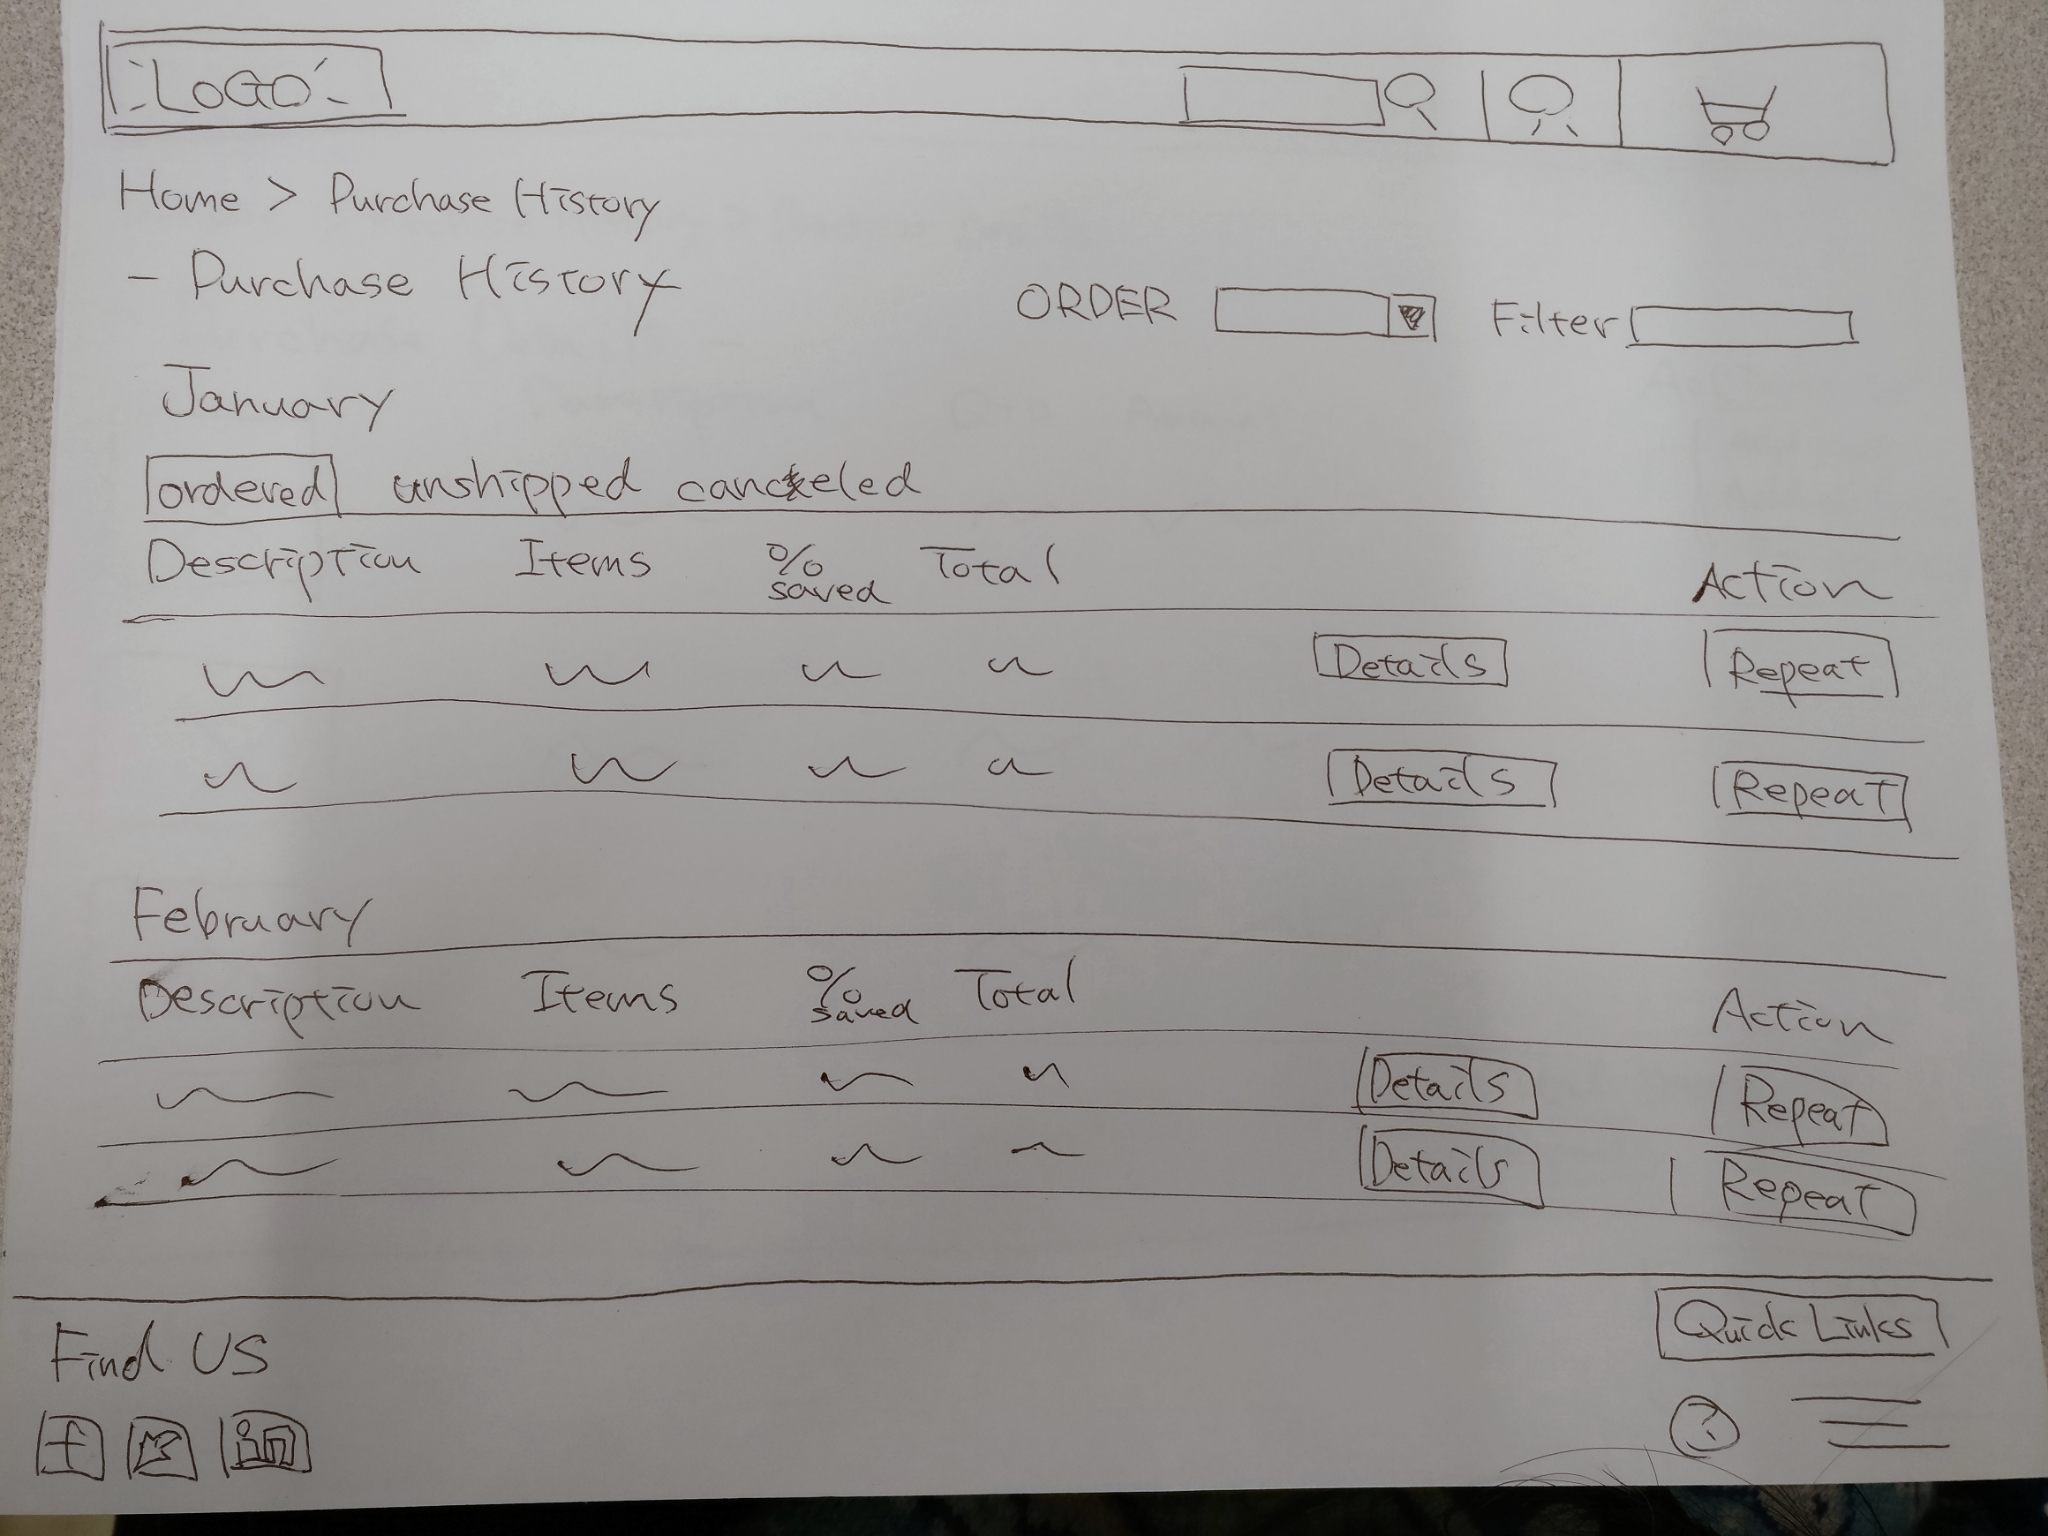 LOGO
Home > Purchase History
- Purchase History
ORDER Filter
January
ordered unshipped canceled
Description Items % saved Total Action
Details Repeat
Details Repeat
February
Description Items % saved Total Action
Details Repeat
Details Repeat
Find US
Quick Links
f in ?